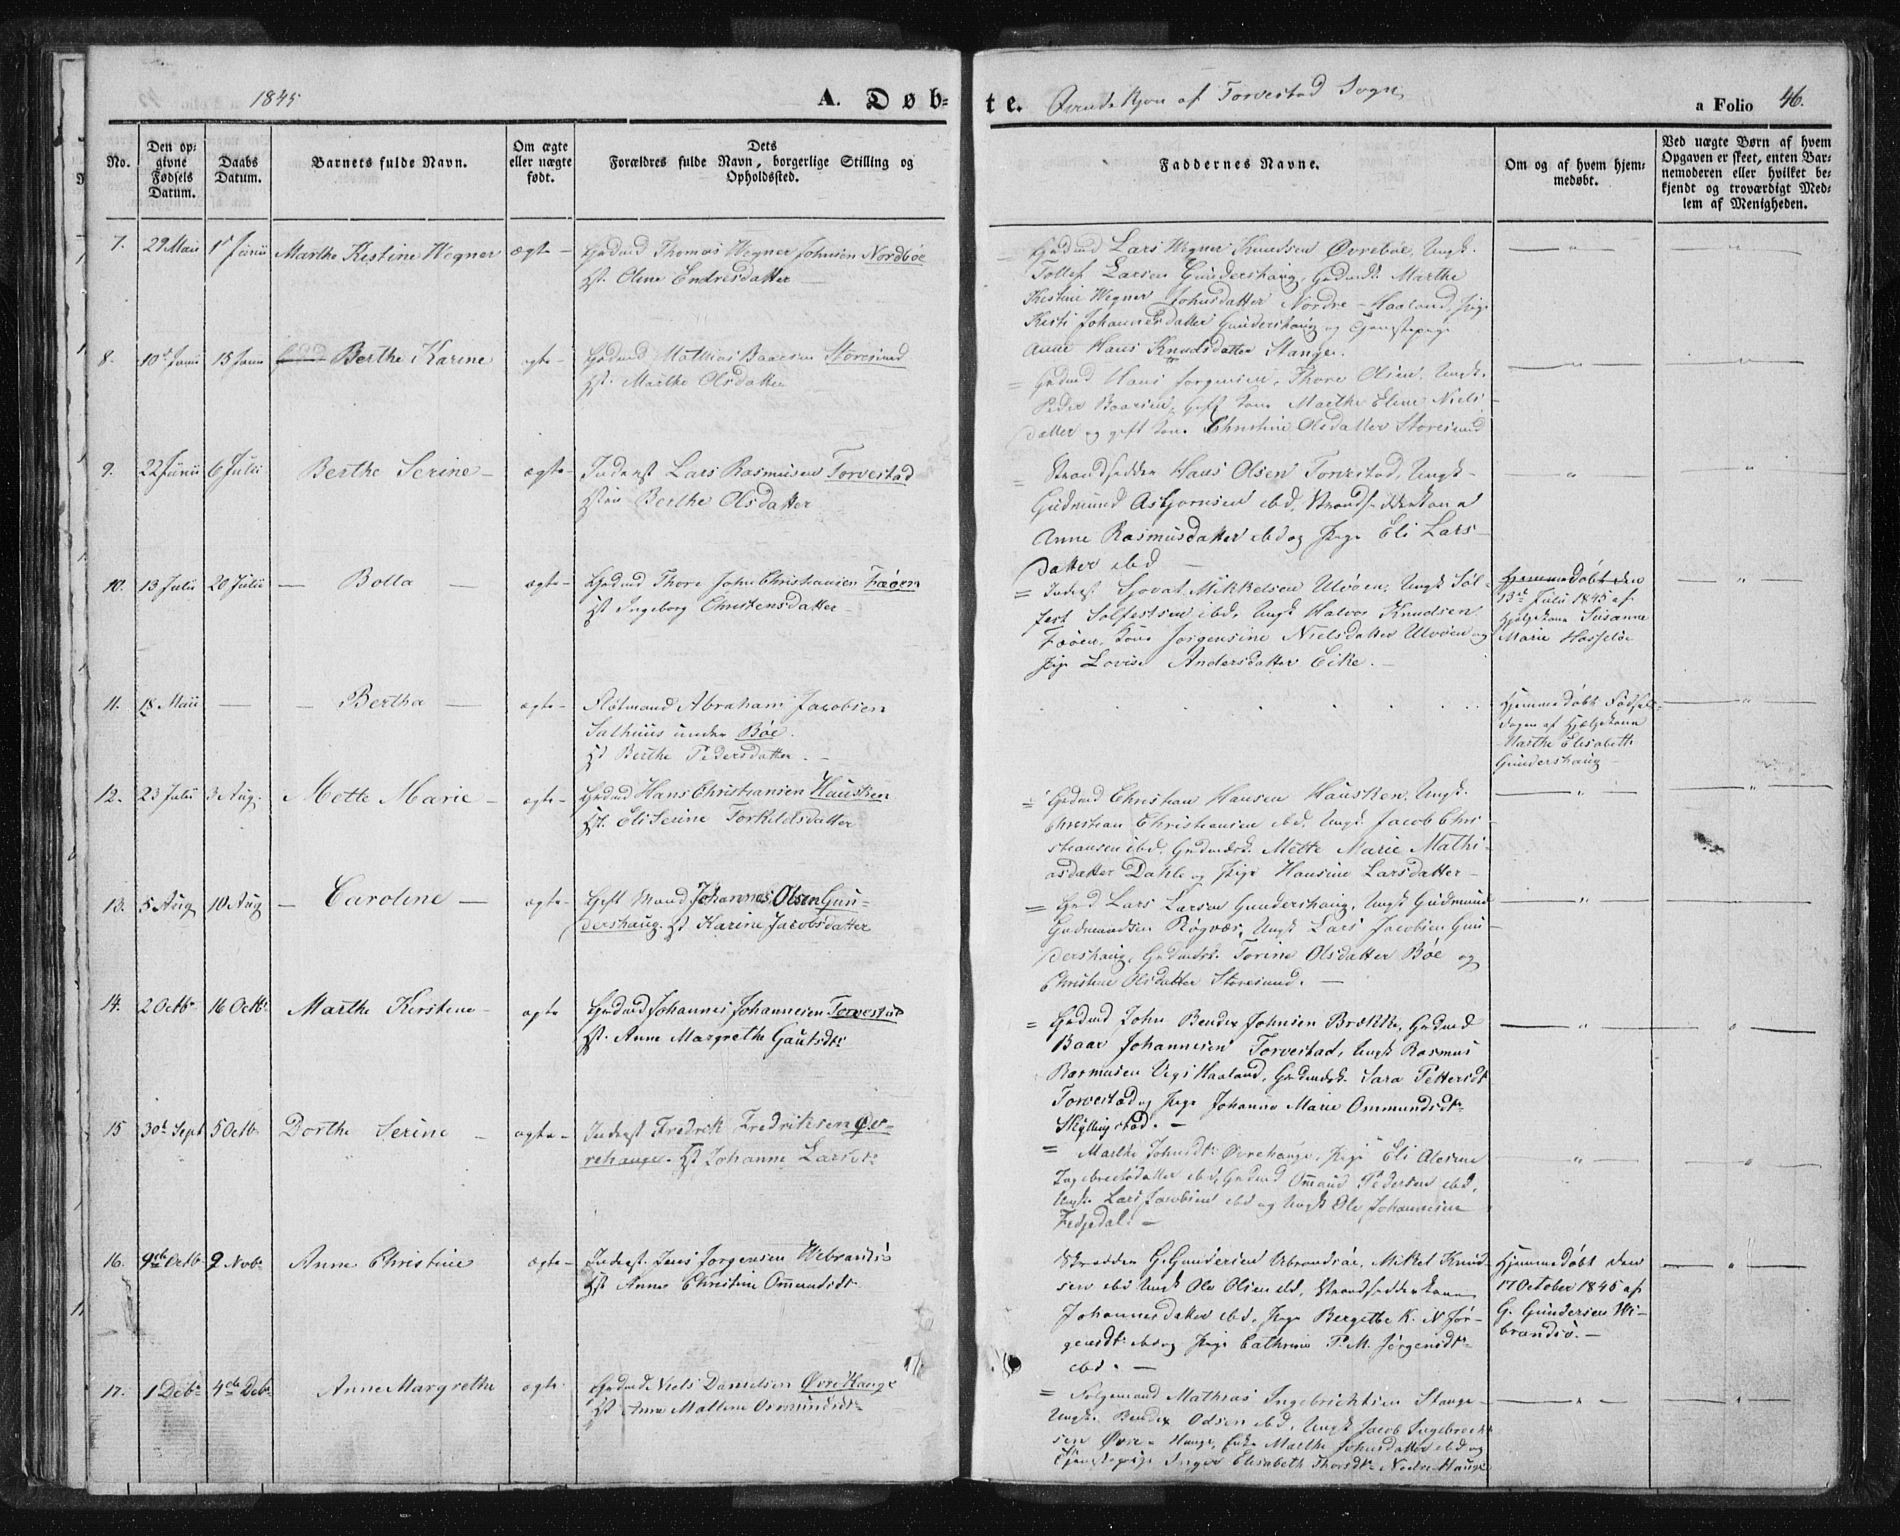 1845
A. Døb-
te. Qvindekjøn af Torvestad Sogn
a Folio 46.
No.
Den op-
givne
Fødsels
Datum.
Daabs
Datum.
Barnets fulde Navn.
Om ægte
eller uægte
født.
Dets
Forældres fulde Navn, borgerlige Stilling og
Opholdssted.
Faddernes Navne.
Om og af hvem hjem-
medøbt.
Ved uægte Børn af hvem
Opgaven er skeet, enten Bar-
nemoderen eller hvilket be-
kjendt og troværdigt Med-
lem af Menigheden.
7. 29 Maii 1st Junii Marthe Kestine Wegner ægte Gadmd Thomas Wegner Johnsen Nordbøe
Hst. Oline Endresdatter
= Gadmd Lars Wegner Knudsen Øvreboe, Ungk.
Tollef Larsen Gundershaug, Gadmdk. Marthe
Kestine Wegner Johnsdatter Nordre-Haaland, Pige
Kisti Johannesdatter Gundershaug og Tjenestepige
Anne Hans Knudsdatter Stange.
8. 10de Junii 15 Junii Berthe Karine ægte Gadmd Mathias Baarsen Storesund
Hst. Marthe Olsdatter
= Gadmd Hans Jørgensen, Thore Olsen, Ungk.
Peder Baarsen, Gift Kone Marthe Eline Niels-
datter og gift Kone Christine Olsdatter Storesund
9. 22 Junii 6 Julii Berthe Serine ægte Inderst Lars Rasmusen Torvestad
Hstru Berthe Olsdatter
= Strandsidder Hans Olsen Torvestad, Ungk.
Gudmund Asbjørnsen ibd, Strandsidderkone
Anne Rasmusdatter ibd og Pige Eli Lars-
datter ibd
10. 13 Julii 20 Julii Bolla ægte Gadmd Thore John Christiansen Fæøen
Hst Ingeborg Christensdatter
= Inderst Sjovat Mikkelsen Utvøen, Ungk Søl-
fest Solfestsen ibd, Ungk Halvor Knudsen
Fæøen, Kone Jørgensine Nielsdatter Utvøen og
Pige Lovise Andersdatter Eike.
Hjemmedøbt den
13de Julii 1845 af
Hjelpekone Susanne
Marie Hasseløe
11. 18 Maii Bertha ægte Flotmand Abraham Jacobsen
Salhuus under Bøe.
Hst Berthe Pedersdatter.
Hjemmedøbt Fødsels-
dagen af Hjelpekone
Marthe Elisabeth
Gundershaug
12. 23 Julii 3 Aug. Mette Marie ægte Gadmd Hans Christiansen Hausken
Hst. Eli Serine Torkildsdatter
= Gadmd Christian Hansen Hausken, Ungk.
Christian Christiansen ibd, Ungk. Jacob Chri-
stiansen ibd, Gadmdk. Mette Marie Mathi-
asdatter Dahle og Pige Hansine Larsdatter
13. 5 Aug 10 Aug Caroline ægte Gift Mand Johannes Olsen Gun-
dershaug. Hst Karine Jacobsdatter
= Gmd Lars Larsen Gundershaug, Ungk Gudmund
Gudmundsen Røgvær, Ungk Lars Jacobsen Gun-
dershaug, Gadmdk. Torine Olsdatter Bøe og
Christine Olsdatter Storesund.
14. 2 Octbr 16 Octbr Marthe Kirstine ægte Gadmd Johannes Johannesen Torvestad
Hst. Anne Margrethe Gautsdtr
= Gadmd John Bendix Johnsen Brække, Gadmd
Baar Johannesen Torvestad, Ungk Rasmus
Rasmusen Haaland, Gadmdk. Sara Pettersdt
Torvestad og Pige Johanne Marie Ommundsdtr
Skyllingstad.
15 30d Sept 5 Octb Dorthe Serine ægte Inderst Fredrik Fredriksen Øv-
rehauge. Hst Johanne Larsdtr
= Marthe Johnsdtr Øvrehauge, Pige Eli
Ingebretsdatter ibd, Gadmd Omund Pedersen ibd,
Ungk. Lars Jacobsen ibd og Ungk Ole Johannesen
16. 9de Octb 9 Novb Anne Christine ægte Inderst. Jens Jørgensen Wibrandsø
Hst Anne Christine Ommundsdt
Skrædder G. Gundersen Vibrandsøe, Mikel Knud-
sen ibd Ungk Ole Olsen ibd, Strandsidderkone
Johannesdatter ibd, Pige Bergithe K. N Jør-
gensdt ibd og Pige Cathrine P. M. Jørgensdtr
ibd.
Hjemmedøbt den
17 October 1845 af
G. Gundersen Wi-
brandsø.
17. 1 Debr 4de Debr Anne Margrethe ægte Gadmd Niels Danielsen Øvre Hauge
Hst Anne Mallene Osmundsdtr
= Følgemand Mathias Ingebrichtsen Stange
Ungk. Bendix Odsen ibd, Ungk Jacob Ingebrecht-
sen Øvre Hauge, Enke Marthe Johnsdatter ibd og
Tjenestepige Inger Elisabeth Thorsdtr Nedre Hauge